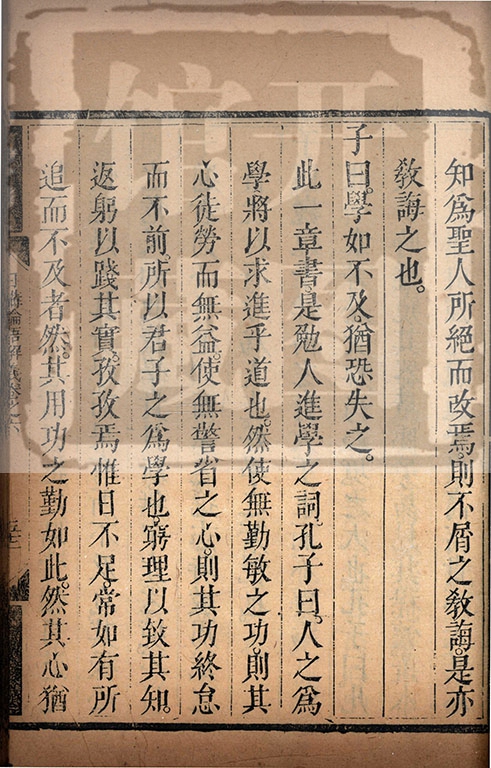 知爲聖人所絕而改焉。則不屑之敎誨。是亦
敎誨之也。
子曰。學如不及。猶恐失之。
此一章書。是勉人進學之詞。孔子曰。人之爲
學將以求進乎道也。然使無勤敏之功。則其
心徒勞而無益。使無警省之心。則其功終怠
而不前。所以君子之爲學也。窮理以致其知
返躬以踐其實。孜孜焉惟日不足。常如有所
追而不及者然。其用功之勤如此。然其心猶
日講論語解義卷之六